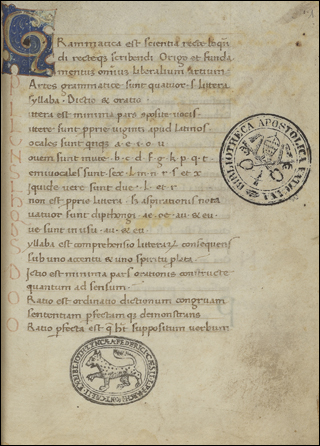 GRammatica est scientia recte loqn
di recteq; scribendi Origo et funda
mentum omnium liberalium artium
Artes grammatice sunt quatuor s littera
syllaba Dictio & oratio
littera est minima pars composite vocis
littere sunt pprie viginti apud latinos
vocales sunt quinq; a e i o u
Quem sunt mute b c d f g k p q t
Semivocales sunt sex l m n r s et x
liquide vero sunt due l et r
H non est pprie littera s; aspirationis nota
Quatuor sunt dipthongi ae oe au & eu
que sunt in usu au & eu
Syllaba est comprehensio litterarum consequens
sub uno accentu & uno spiritu plata
Dictio est minima pars orationis constructe
quantum ad sensum
Oratio est ordinatio dictionum congruam
sententiam pfectamq; demonstrans
Oratio pfecta est q ht suppositum verbum
BIBLIOTHECA APOSTOLICA VATICANA